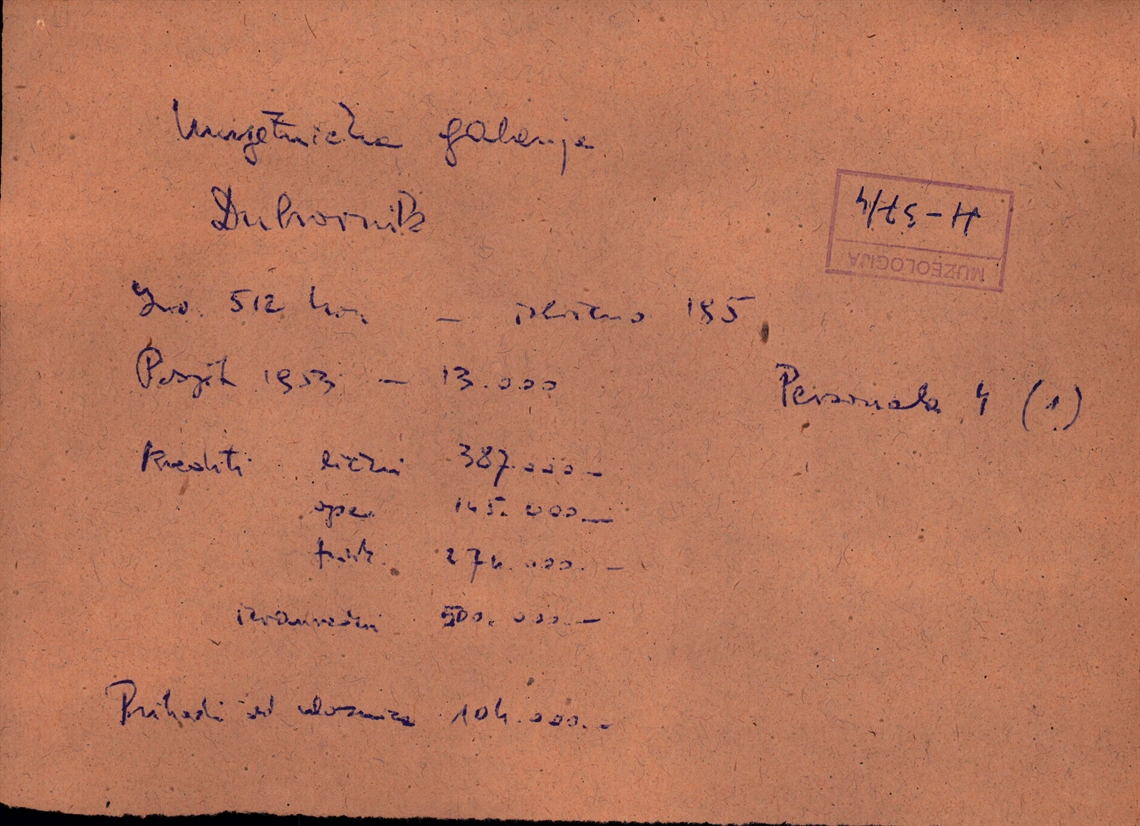 Umjetnička galerija
Dubrovnik
H-57/4
MUZEOLOGIJA
Inv. 512 kom. – izloženo 185
Posjet 1953 – 13.000
Personala 4 (1)
Krediti lični 387.000.–
oper. 145.000.–
funk. 274.000.–
izvanredni 500.000.–
Prihodi od ulaznica 104.000.–